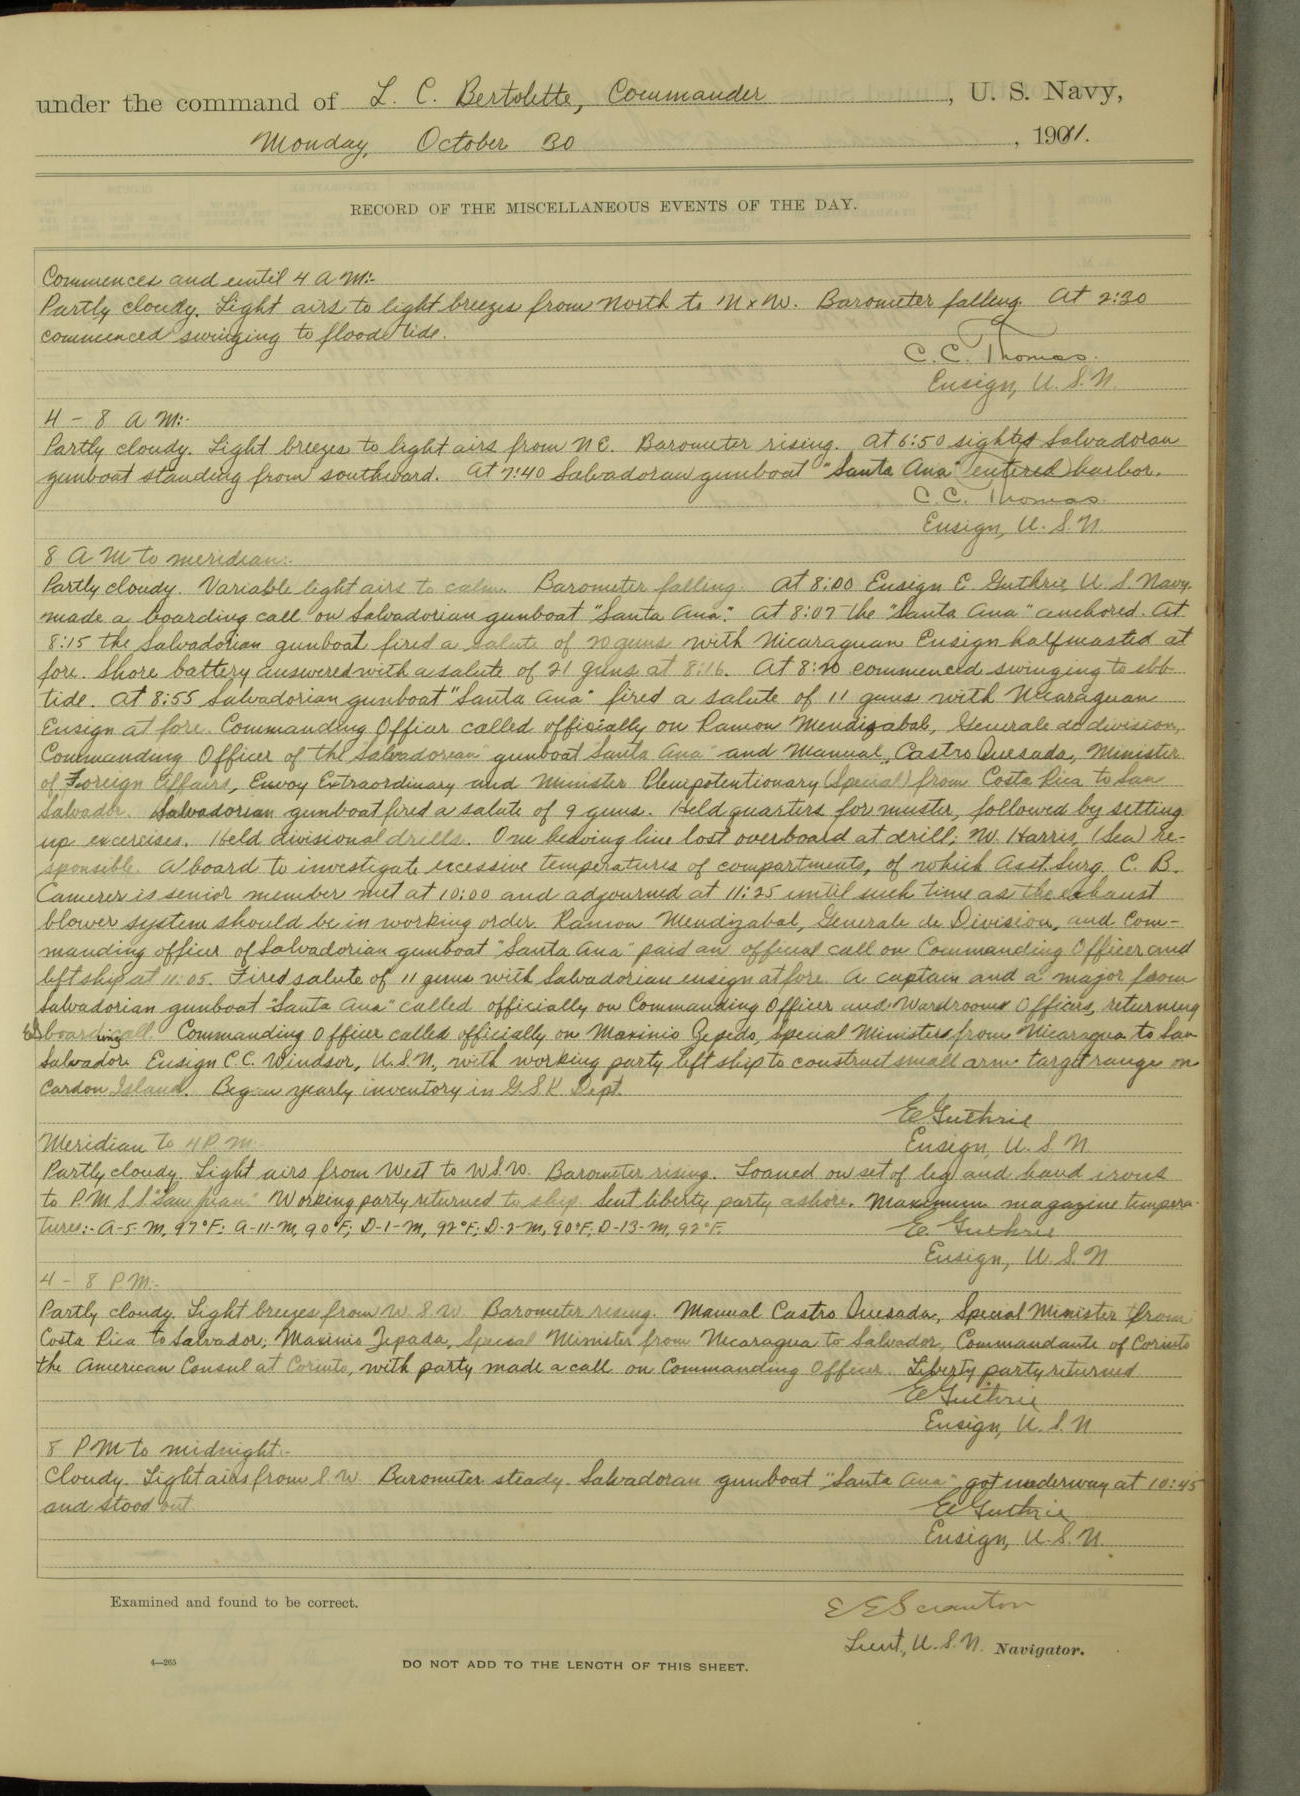 under the command of L. C. Bertolette, Commander, U. S. Navy,
Monday, October 30, 1911.
RECORD OF THE MISCELLANEOUS EVENTS OF THE DAY.
Commences and until 4 A M:-
Partly cloudy. Light airs to light breezes from North to N x W. Barometer falling. At 2:30
commenced swinging to flood tide.
C. C. Thomas.
Ensign, U. S. N.
4 - 8 A M:-
Partly cloudy. Light breezes to light airs from N E. Barometer rising. At 6:50 sighted Salvadoran
gunboat standing from southward. At 7:40 Salvadoran gunboat "Santa Ana" entered harbor.
C. C. Thomas.
Ensign, U. S. N.
8 A M to meridian:-
Partly cloudy. Variable light airs to calm. Barometer falling. At 8:00 Ensign E. Guthrie, U. S. Navy.
made a boarding call on Salvadorian gunboat "Santa Ana". At 8:07 the "Santa Ana" anchored. At
8:15 the Salvadorian gunboat fired a salute of 20 guns with Nicaraguan Ensign halfmasted at
fore. Shore battery answered with a salute of 21 guns at 8:16. At 8:20 commenced swinging to ebb
tide. At 8:55 Salvadorian gunboat "Santa Ana" fired a salute of 11 guns with Nicaraguan
Ensign at fore. Commanding Officer called officially on Ramon Mendizabal, Generale de division,
Commanding Officer of the Salvadorian gunboat "Santa Ana" and Manual, Castro Quesada, Minister
of Foreign Affairs, Envoy Extraordinary and Minister Plenipotentionary (Special) from Costa Rica to San
Salvador. Salvadorian gunboat fired a salute of 9 guns. Held quarters for muster, followed by setting
up excercises. Held divisional drills. One heaving line lost overboard at drill; W. Harris, (Sea) re-
sponsible. A board to investigate excessive temperatures of compartments, of which Asst. Surg. C. B.
Camerer is senior member met at 10:00 and adjourned at 11:25 until such time as the exhaust
blower system should be in working order. Ramon Mendizabal, Generale de Division, and Com-
manding officer of Salvadorian gunboat "Santa Ana" paid an official call on Commanding Officer and
left ship at 11:05. Fired salute of 11 guns with Salvadorian ensign at fore. A captain and a major from
Salvadorian gunboat "Santa Ana" called officially on Commanding Officer and Wardroom Officers, returning
boarding call. Commanding Officer called officially on Maxinio Zepedo, Special Minister from Nicaragua to San
Salvador. Ensign C C. Windsor, U.S.N., with working party left ship to construct small arm target range on
Cardon Island. Began yearly inventory in G. S. K. Dept.
E Guthrie
Ensign, U. S. N
Meridian to 4 P. M.
Partly cloudy. Light airs from West to W S W. Barometer rising. Loaned on set of leg and hand irons
to P. M. S. S. "San Juan" Working party returned to ship. Sent liberty party ashore. Maximum magazine tempera-
tures:- A-5-M, 97°F; A-11-M, 90°F; D-1-M, 92°F; D-2-M, 90°F; D-13-M, 92°F.
E. Guthrie
Ensign, U. S. N
4 - 8 P M:-
Partly cloudy. Light breezes from W. S. W. Barometer rising. Manual Castro Quesada, Special Minister from
Costa Rica to Salvador; Maxinio Zepada, Special Minister from Nicaragua to Salvador, Commandante of Corinto
the American Consul at Corinto, with party made a call on Commanding Officer. Liberty party returned
E Guthrie
Ensign, U. S. N
8 P M to midnight:-
Cloudy. Light airs from S. W. Barometer steady. Salvadoran gunboat "Santa Ana" got underway at 10:45
and stood out.
E Guthrie
Ensign, U. S. N.
Examined and found to be correct.
E E Scranton
Lieut, U. S. N. Navigator.
4—265
DO NOT ADD TO THE LENGTH OF THIS SHEET.